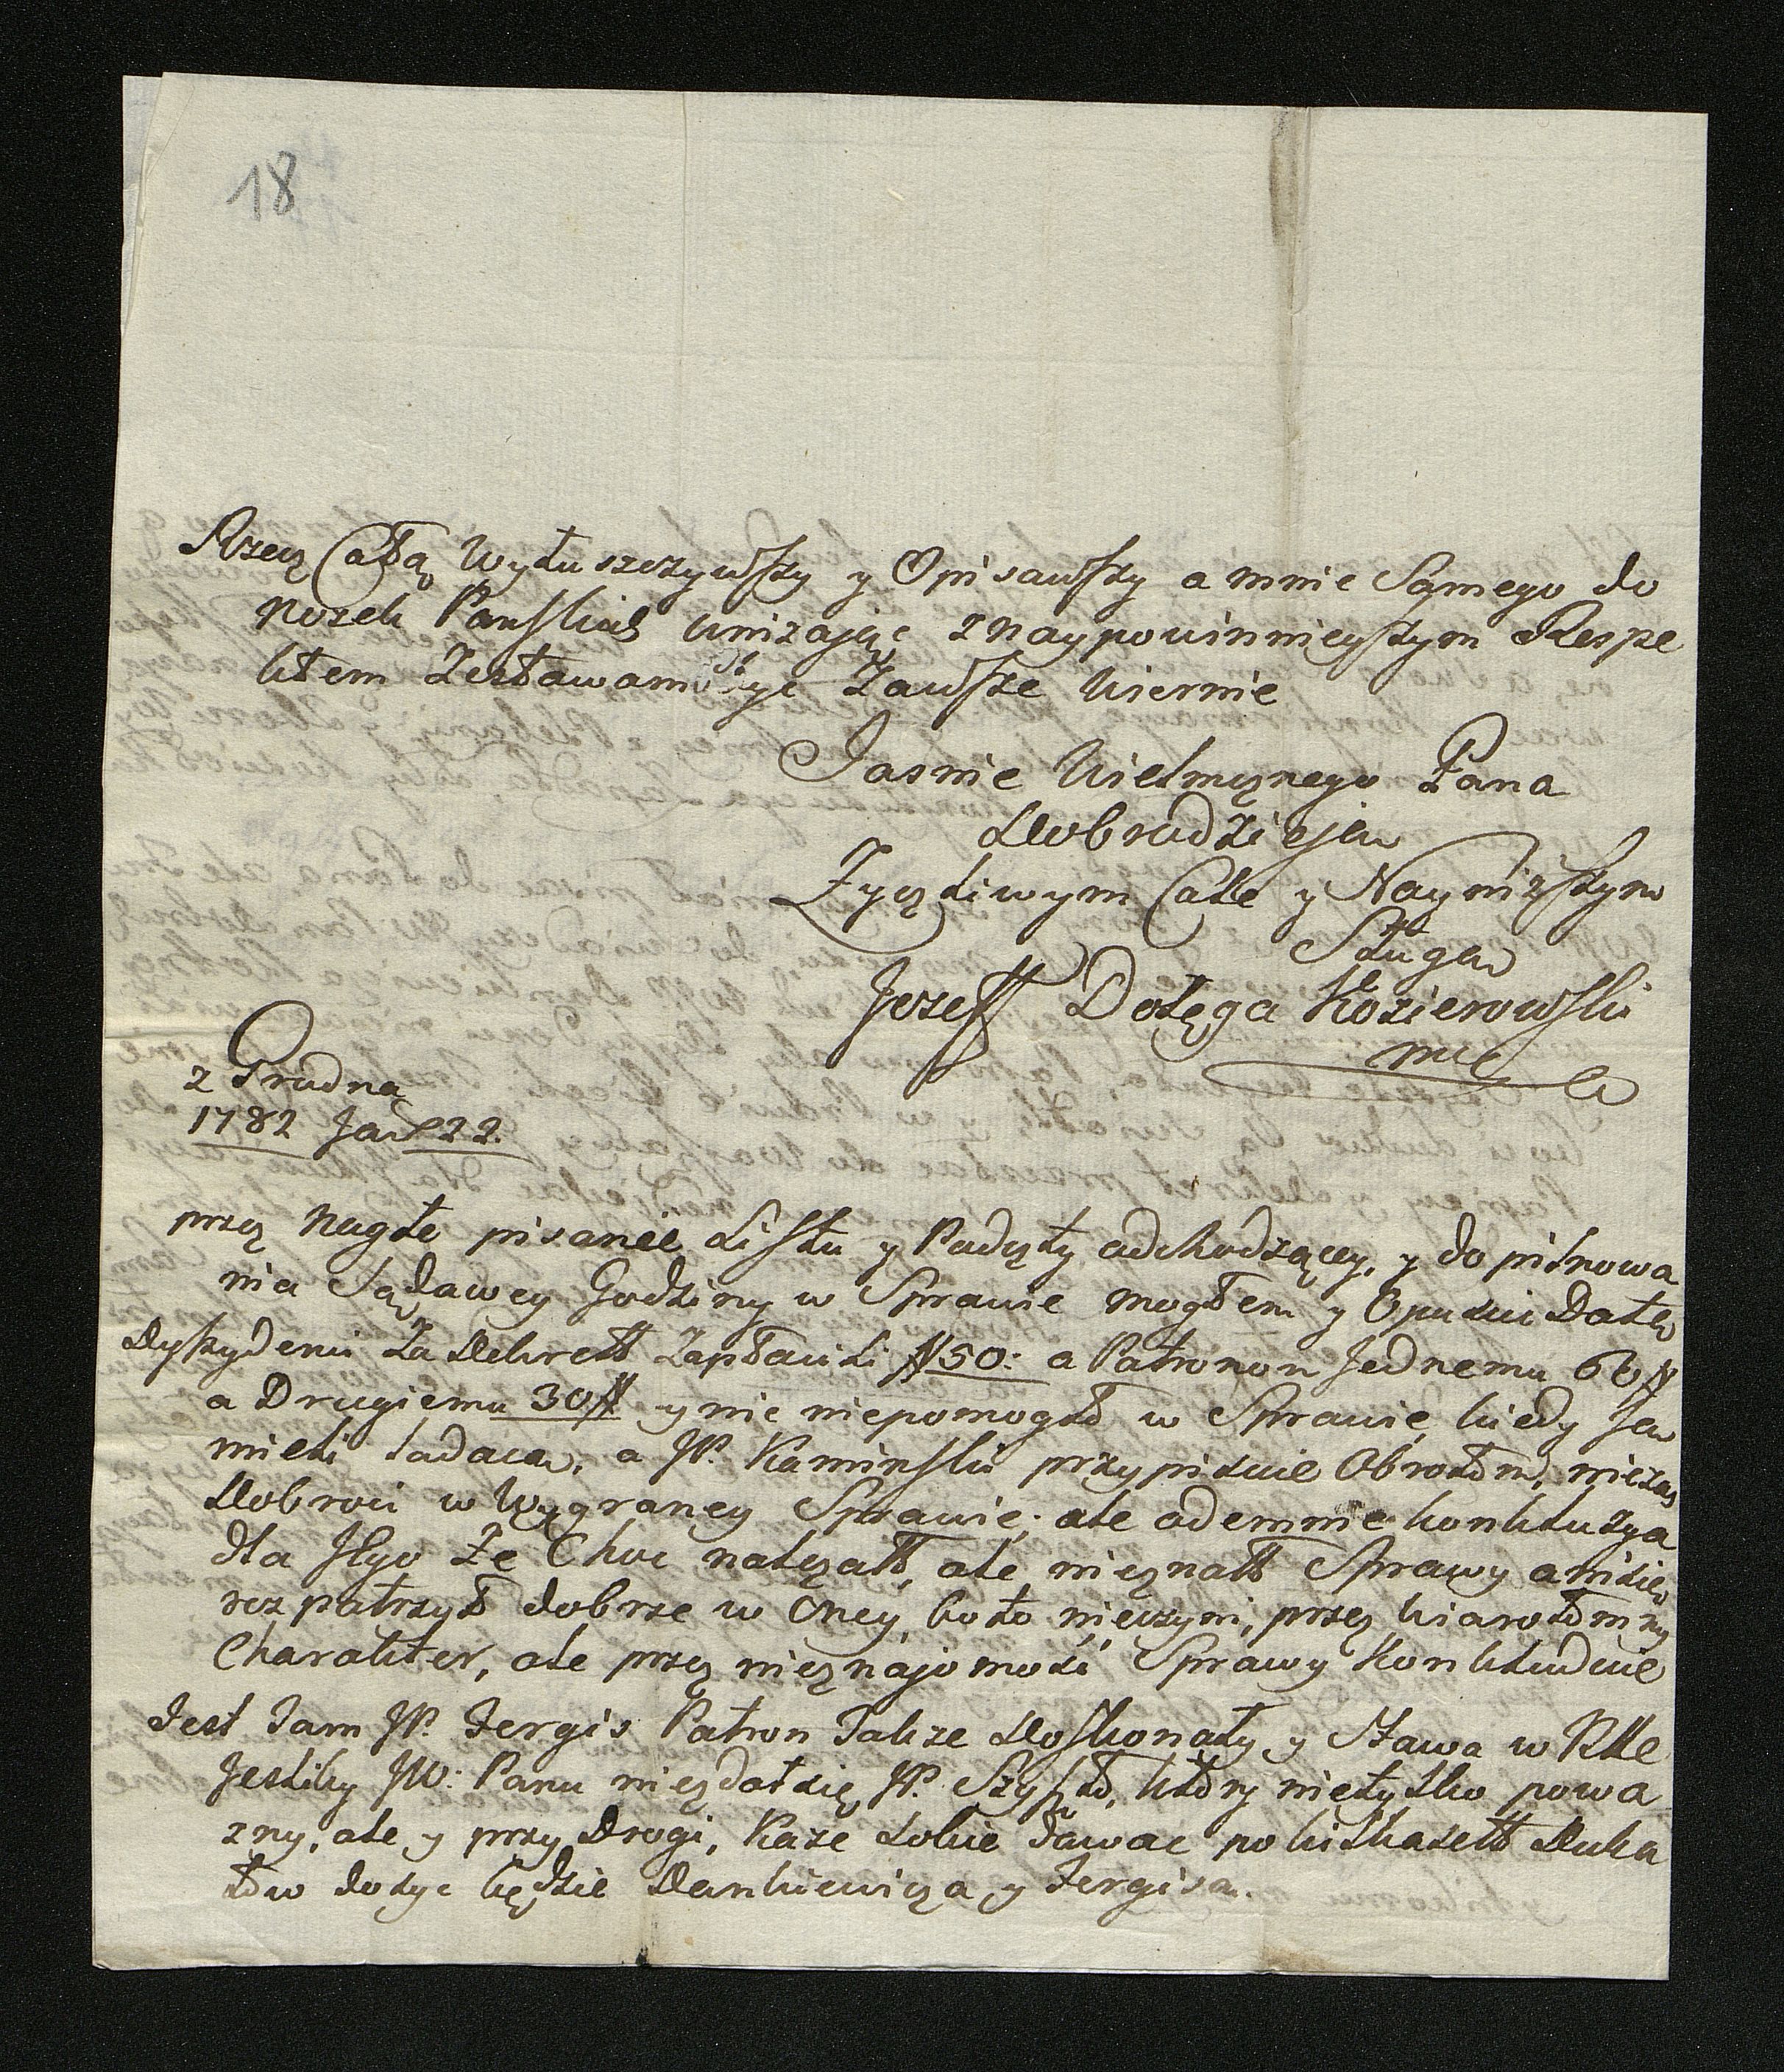 18
Rzecz Całą Wytuszczywszy y Opisawszy a mnie Samego do
Nozek Panskich Unizając z naypowinnieyszym Respe
ktem Zostawam być Zawsze Wiernie
Jasnie Wielmoznego Pana
Dobrodzieja
Zyczliwym Cale y Nayniższym
Sługą
Jozeff Dołęga Kozierowski
mc
z Grudna
1782 Ja 22.
przez nagłe pisanie Listu y Poczty odchodzącey, y do pilnowa
nia Sądowey Godziny w Sprawie mogłem y Opuscic Datę
Dyssydenci za Dekrett Zapłacili # 50: a Patronom Jednemu 60 #
a Drugiemu 30 # y nic niepomogło w Sprawie kiedy Ja
mieli ladaca, a JP. Kaminski przypisuie Obrotom, nie zas
Dobroci w Wygraney Sprawie; ale odemnie konkluzya
dla Jego Ze Choc nalezałł, ale nieznałł Sprawy ani się
rozpatrzył dobrze w Oney, bo to nieczyni, przez wiarołomny
Charakter, ale przez nieznajomość Sprawy Konkluduie
Jest Tam JP. Jergis Patron Takze Doskonały y Stawa w
Jesliby JW: Panu niezdał się JP. Szyszło, który nietylko powa
zny, ale y przy Drogi, Kaze sobie dawac po kilkasett Duka
tow dosyc będzie Dankiewicza y Jergisa.